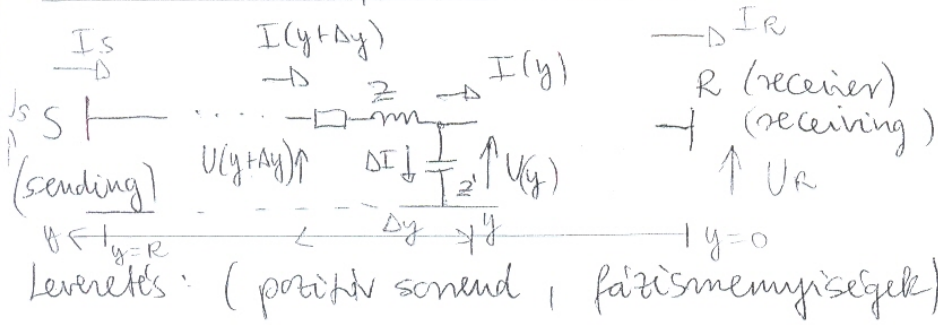 I_S I(y+Δy) I_R
Z I(y) R (receiver)
U_S S .... (receiving)
(sending) U(y+Δy) ΔI Z' U(y) U_R
y y=R Δy y y=0
Levezetés: (pozitív sorrend, fázismennyiségek)